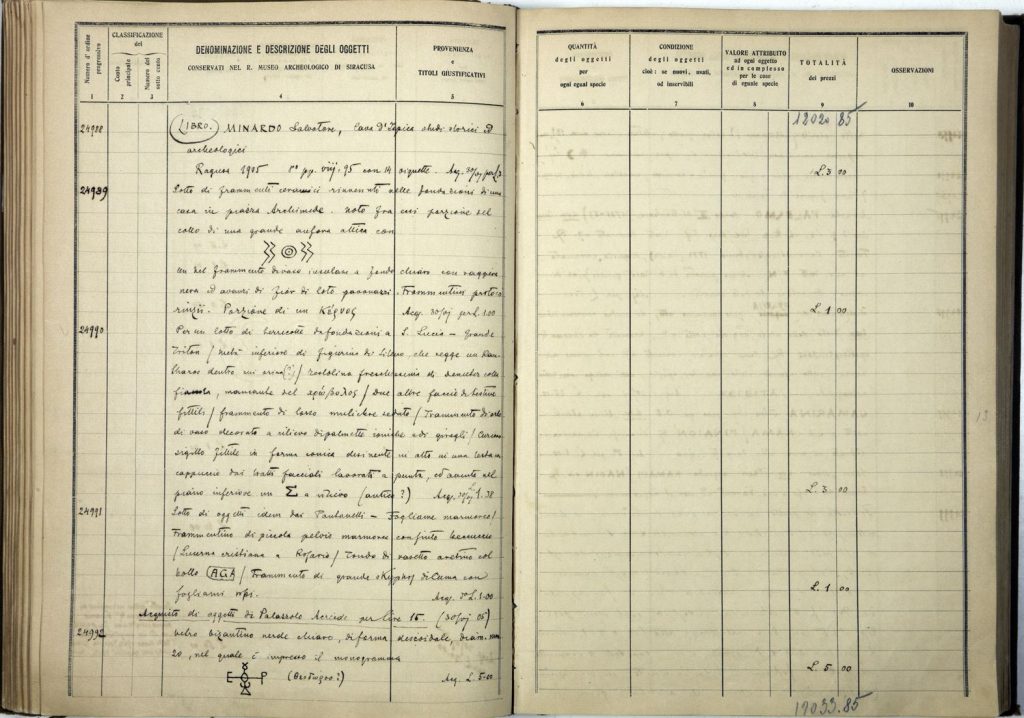 CLASSIFICAZIONE
del
Numero d'ordine
progressivo
Conto
principale
Numero del
sotto conto
DENOMINAZIONE E DESCRIZIONE DEGLI OGGETTI
CONSERVATI NEL R. MUSEO ARCHEOLOGICO DI SIRACUSA
PROVENIENZA
e
TITOLI GIUSTIFICATIVI
1 2 3 4 5
24988 LIBRO. MINARDO Salvatore, Cava d'Ispica studi storici ed
archeologici
Ragusa 1905 pp. 95 con 14 vignette. Acq.
24989 Lotto di frammenti ceramici rinvenuti nelle fondazioni di una
casa in piazza Archimede. Noto fra essi porzione del
collo di una grande anfora attica con
Un bel frammento di vaso insulare a fondo chiaro con
nera ed avanzi di fior di loto paonazzi. Frammentini protoco
rinzii. Porzione di un Κέρνος Acq. 30/vj per L. 1.00
24990 Per un lotto di terrecotte da fondazioni a S. Lucia – Grande
Triton / Metà inferiore di figurina di Sileno, che regge un Kan
tharos dentro un / testolina di demeter colla
, mancante del / Due altre faccie di testine
fittili / frammento di torso muliebre seduto / Frammento di orlo
di vaso decorato a rilievo di palmette ioniche e di giragli / Curioso
sigillo fittile in forma conica desinente in alto in una testa in
cappuccio dai tratti facciali lavorati a punta, ed avente nel
piano inferiore un Σ a rilievo (antico?) Acq.
24991 Lotto di oggetti idem dai Pantanelli – Fogliame marmoreo /
Frammentino di piccola pelvis marmorea con finto beccuccio
/ Lucerna cristiana a Rosario / Tondo di vasetto aretino col
bollo AGA / Frammento di grande skyphos di Cuma con
fogliami Acq. L. 1.00
Acquisto di oggetti di Palazzolo Acreide per lire 15. (30/vj 05)
24992 Vetro bizantino verde chiaro, di forma discoidale, diam. mm
20, nel quale è impresso il monogramma
E P Acq. L. 5.00
QUANTITÀ
degli oggetti
per
ogni egual specie
CONDIZIONE
degli oggetti
cioè: se nuovi, usati,
od inservibili
VALORE ATTRIBUITO
ad ogni oggetto
ed in complesso
per le cose
di eguale specie
TOTALITÀ
dei prezzi
OSSERVAZIONI
6 7 8 9 10
12020 85
L. 3 00
L. 1 00
L. 3 00
L. 1 00
L. 5 00
12033.85